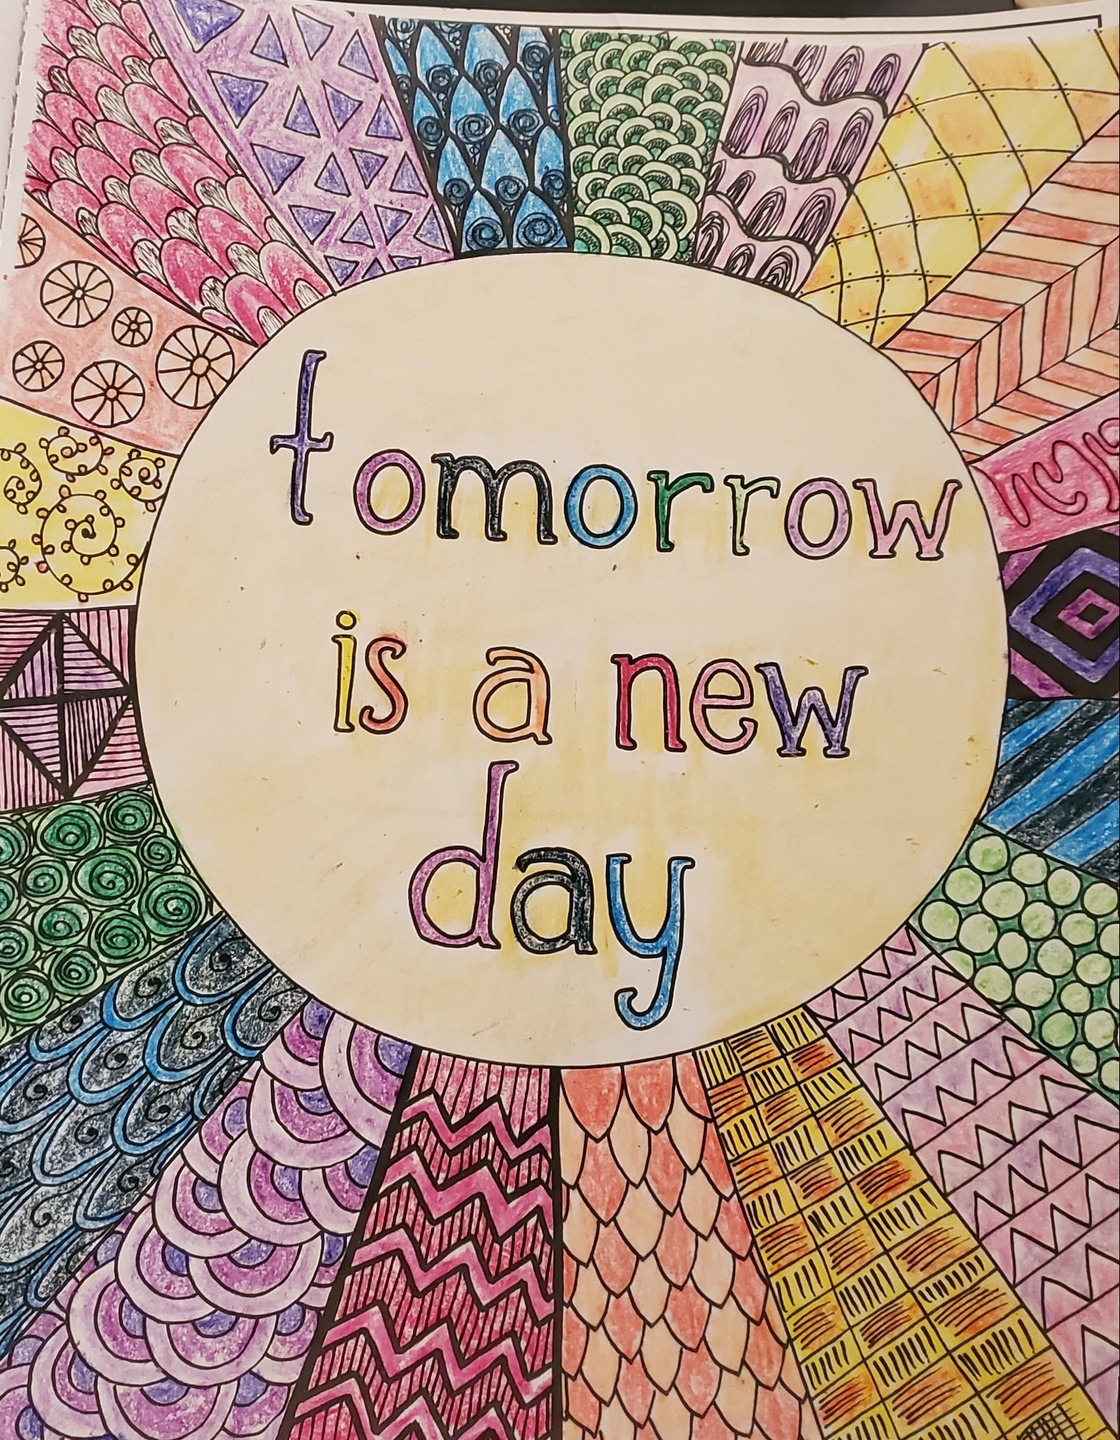 tomorrow
is a new
day